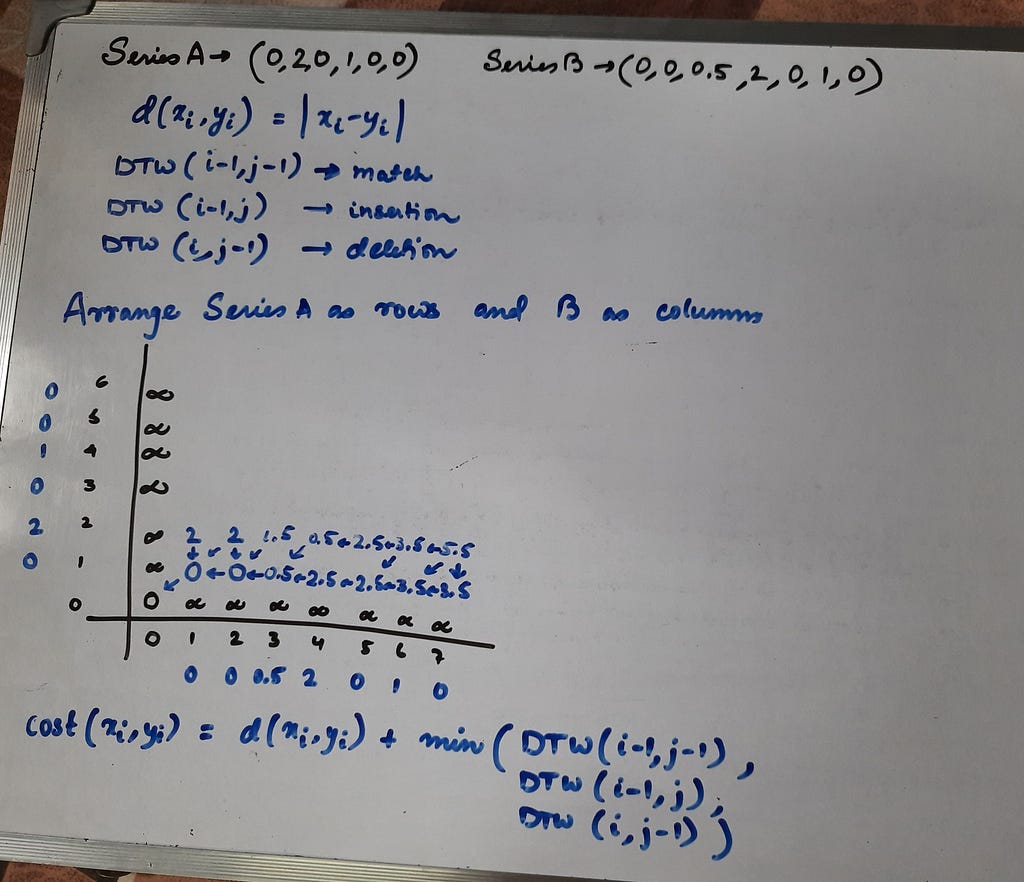 Series A → (0,2,0,1,0,0) Series B → (0,0,0.5,2,0,1,0)
d(xi,yi) = |xi-yi|
DTW (i-1,j-1) → match
DTW (i-1,j) → insertion
DTW (i,j-1) → deletion
Arrange Series A as rows and B as columns
0 6 ∞
0 5 ∞
1 4 ∞
0 3 ∞
2 2 ∞ 2 2 1.5 0.5←2.5←3.5←5.5
↓ ↙ ↓ ↙ ↙ ↙ ↙ ↓
0 1 ∞ 0←0←0.5←2.5←2.5←3.5←3.5
↙
0 0 ∞ ∞ ∞ ∞ ∞ ∞ ∞
0 1 2 3 4 5 6 7
0 0 0.5 2 0 1 0
cost(xi,yi) = d(xi,yi) + min ( DTW(i-1,j-1),
DTW (i-1,j),
DTW (i,j-1) )